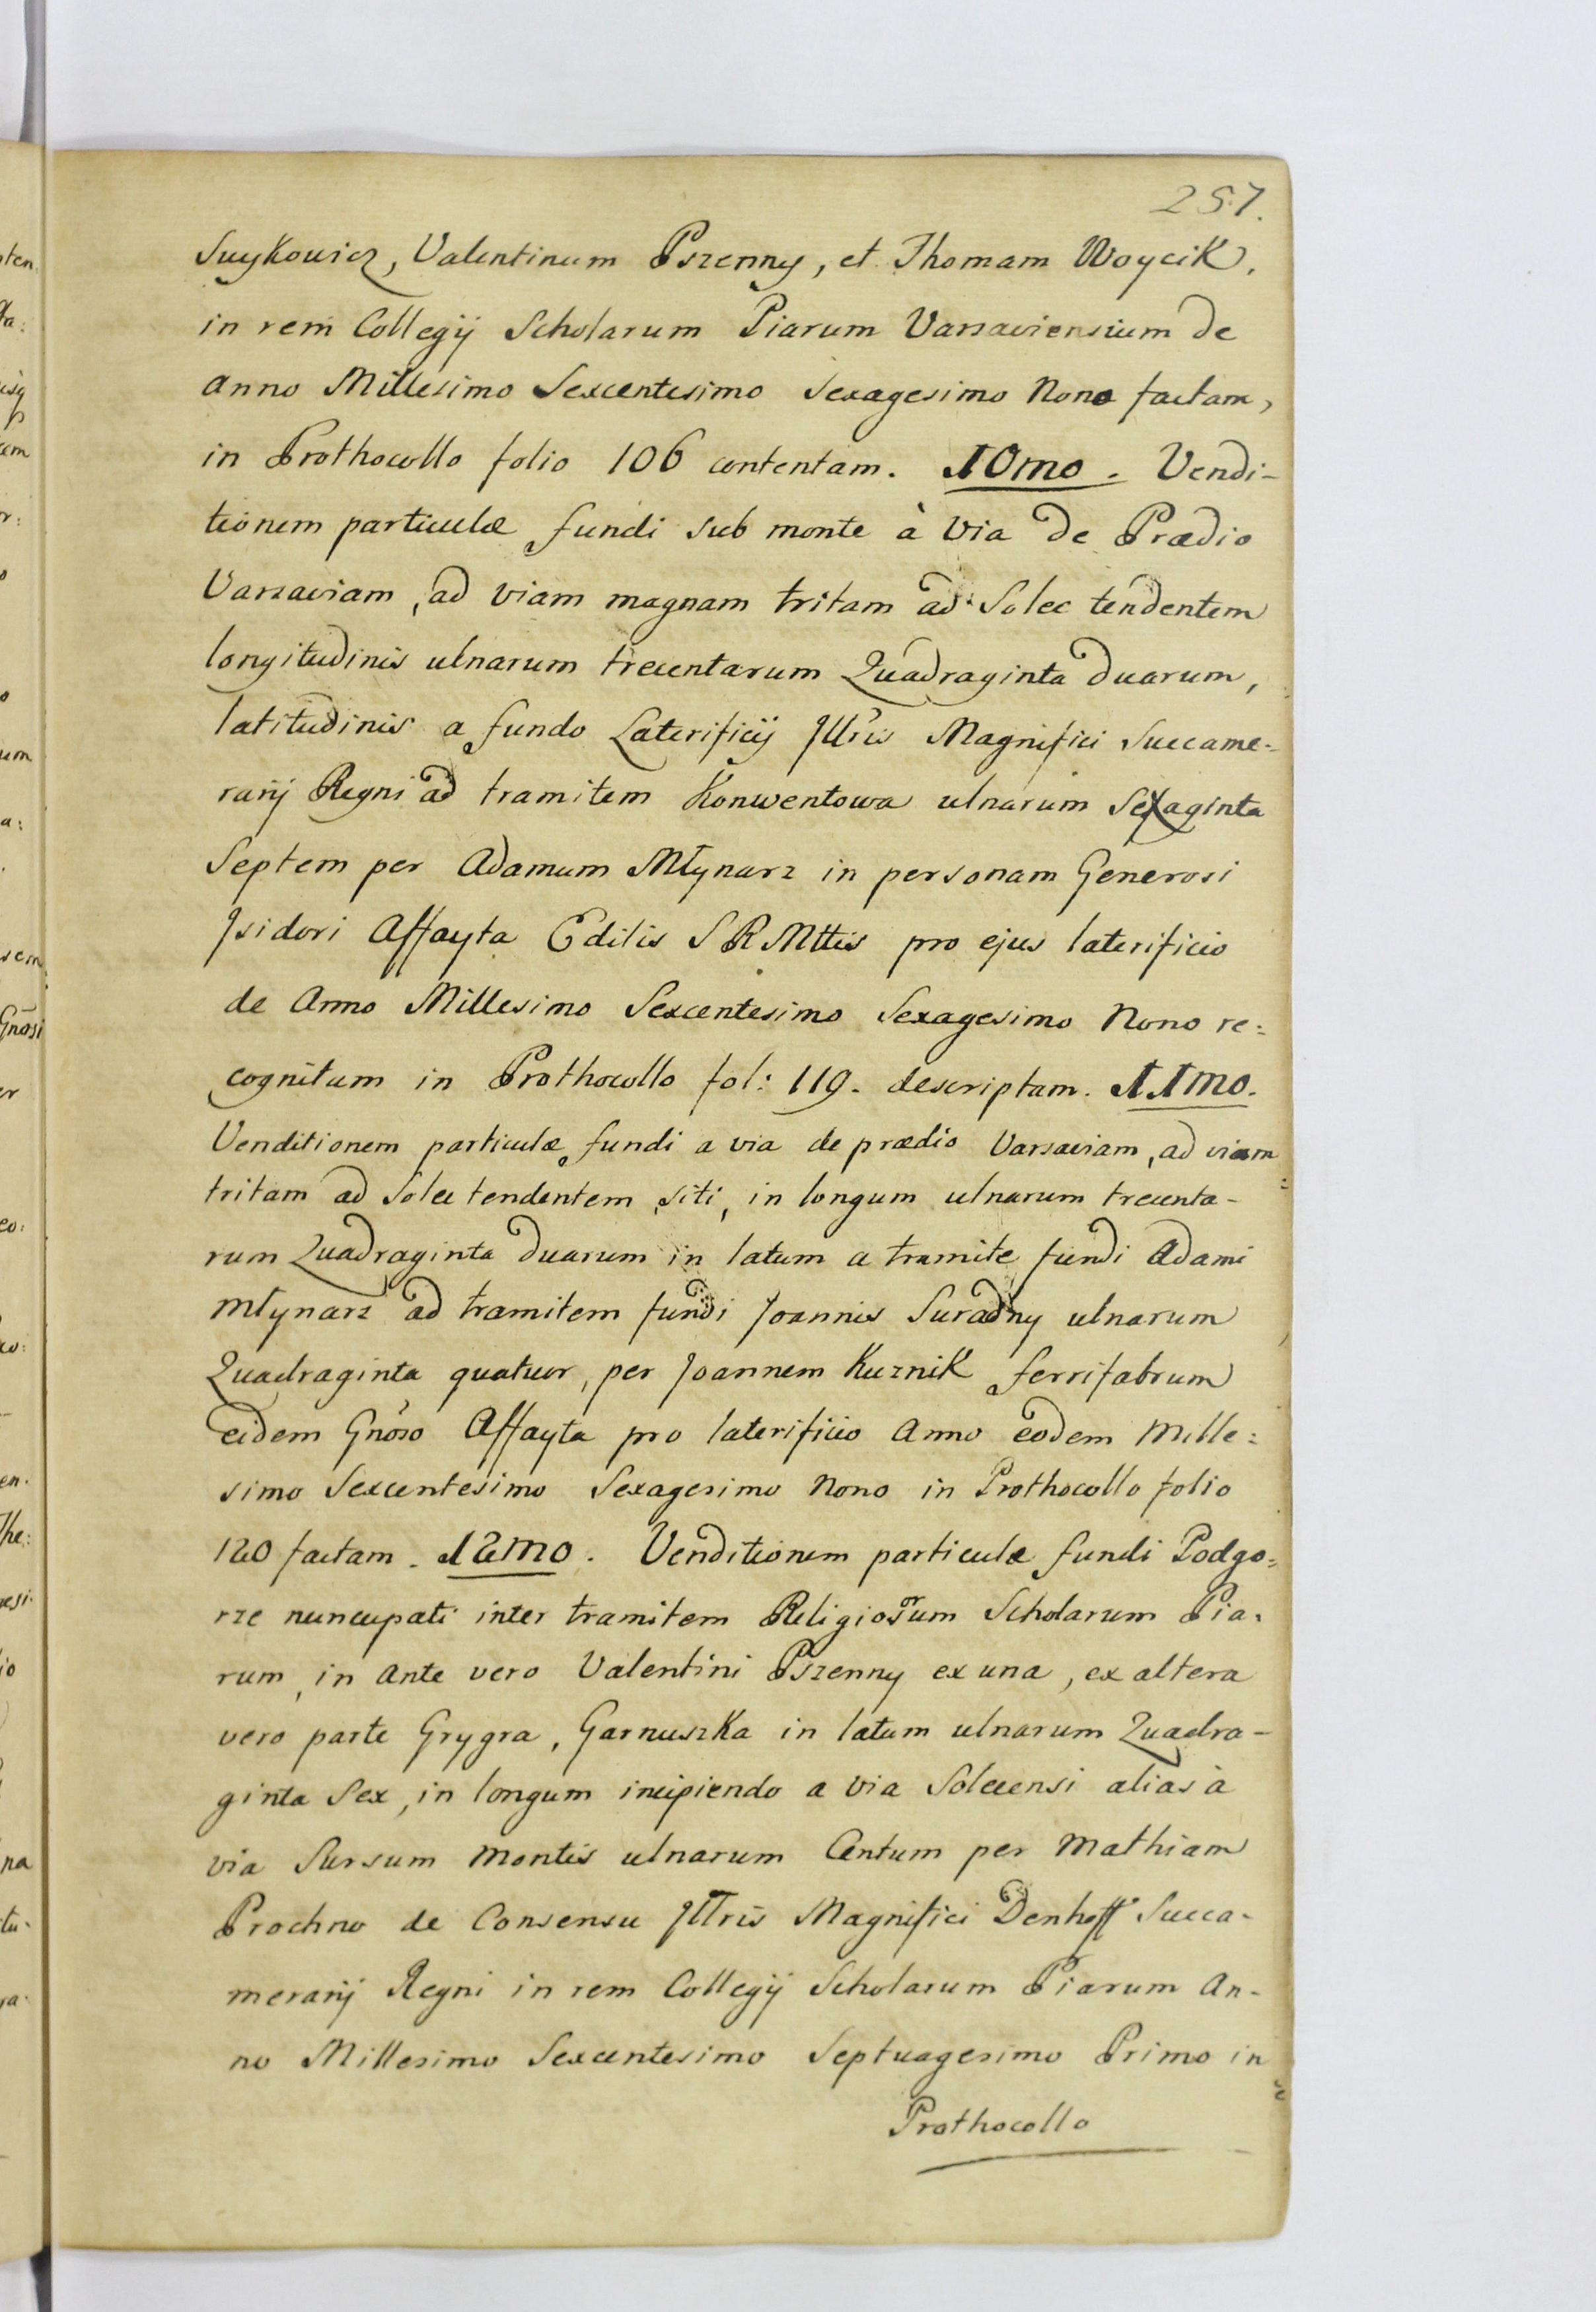 257.
Suykowicz, Valentinum Pszenny, et Thomam Woycik,
in rem Collegij Scholarum Piarum Varsaviensium de
Anno Millesimo Sexcentesimo Sexagesimo Nono factam,
in Prothocollo folio 106 contentam. 10mo. Vendi-
tionem particulæ fundi sub monte à Via de Prædio
Varsaviam, ad viam magnam tritam ad Solec tendentem
longitudinis ulnarum trecentarum Quadraginta duarum,
latitudinis a fundo Laterificij Jllris Magnifici Succame=
rarij Regni ad tramitem Konwentowa ulnarum Sexaginta
Septem per Adamum Młynarz in personam Generosi
Jsidori Affayta Edilis S R Mttis pro ejus laterificio
de Anno Millesimo Sexcentesimo Sexagesimo Nono re=
cognitum in Prothocollo fol: 119. descriptam. 11mo.
Venditionem particulæ fundi a via de prædio Varsaviam, ad viam
tritam ad Solec tendentem, siti, in longum ulnarum trecenta-
rum Quadraginta duarum in latum a tramite fundi Adami
Młynarz ad tramitem fundi Joannis Suradny ulnarum
Quadraginta quatuor, per Joannem Kuznik ferrifabrum
eidem Gnoso Affayta pro laterificio Anno eodem Mille=
simo Sexcentesimo Sexagesimo Nono in Prothocollo folio
120 factam. 12mo. Venditionem particulæ fundi Podgo=
rze nuncupati inter tramitem Religiosorum Scholarum Pia-
rum, in ante vero Valentini Pszenny ex una, ex altera
vero parte Grygra, Garnuszka in latum ulnarum Quadra-
ginta Sex, in longum incipiendo a Via Solecensi alias à
via Sursum Montis ulnarum Centum per Mathiam
Prochno de Consensu Jllris Magnifici Denhoff Succa-
merarij Regni in rem Collegij Scholarum Piarum An-
no Millesimo Sexcentesimo Septuagesimo Primo in
Prothocollo